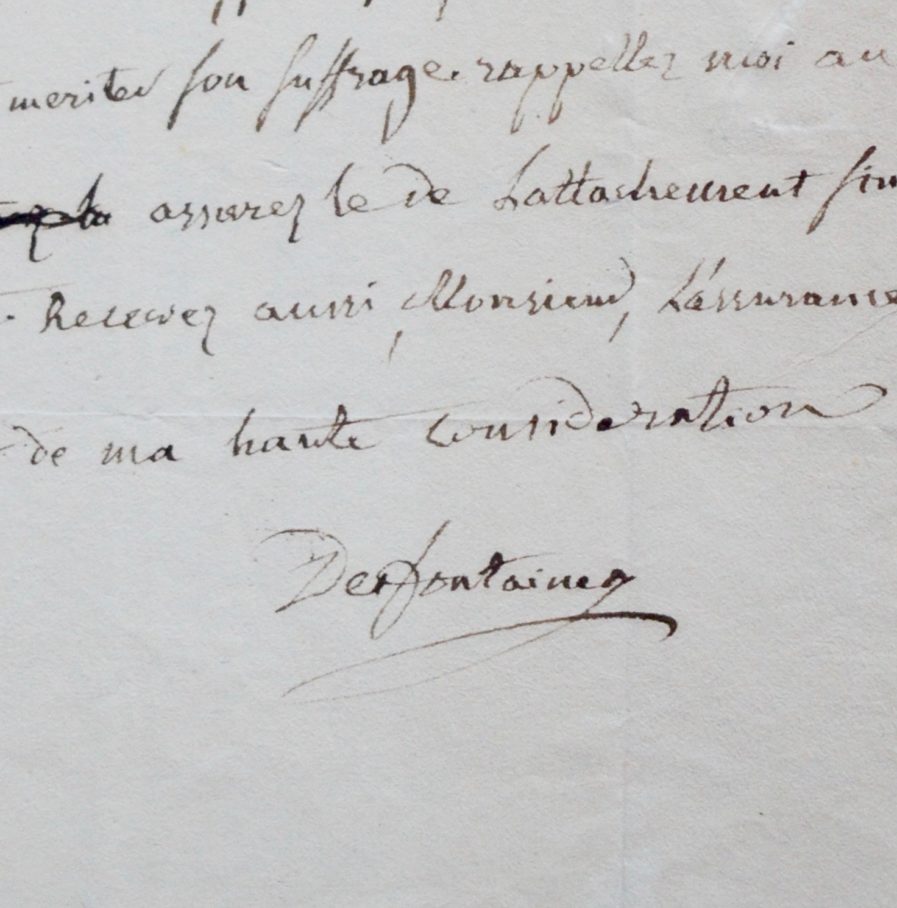 meriter son suffrage. rappellez moi au
la assurez le de Lattachement
Recevez aussi, Monsieur, L'assurance
de ma haute consideration
Desfontaines